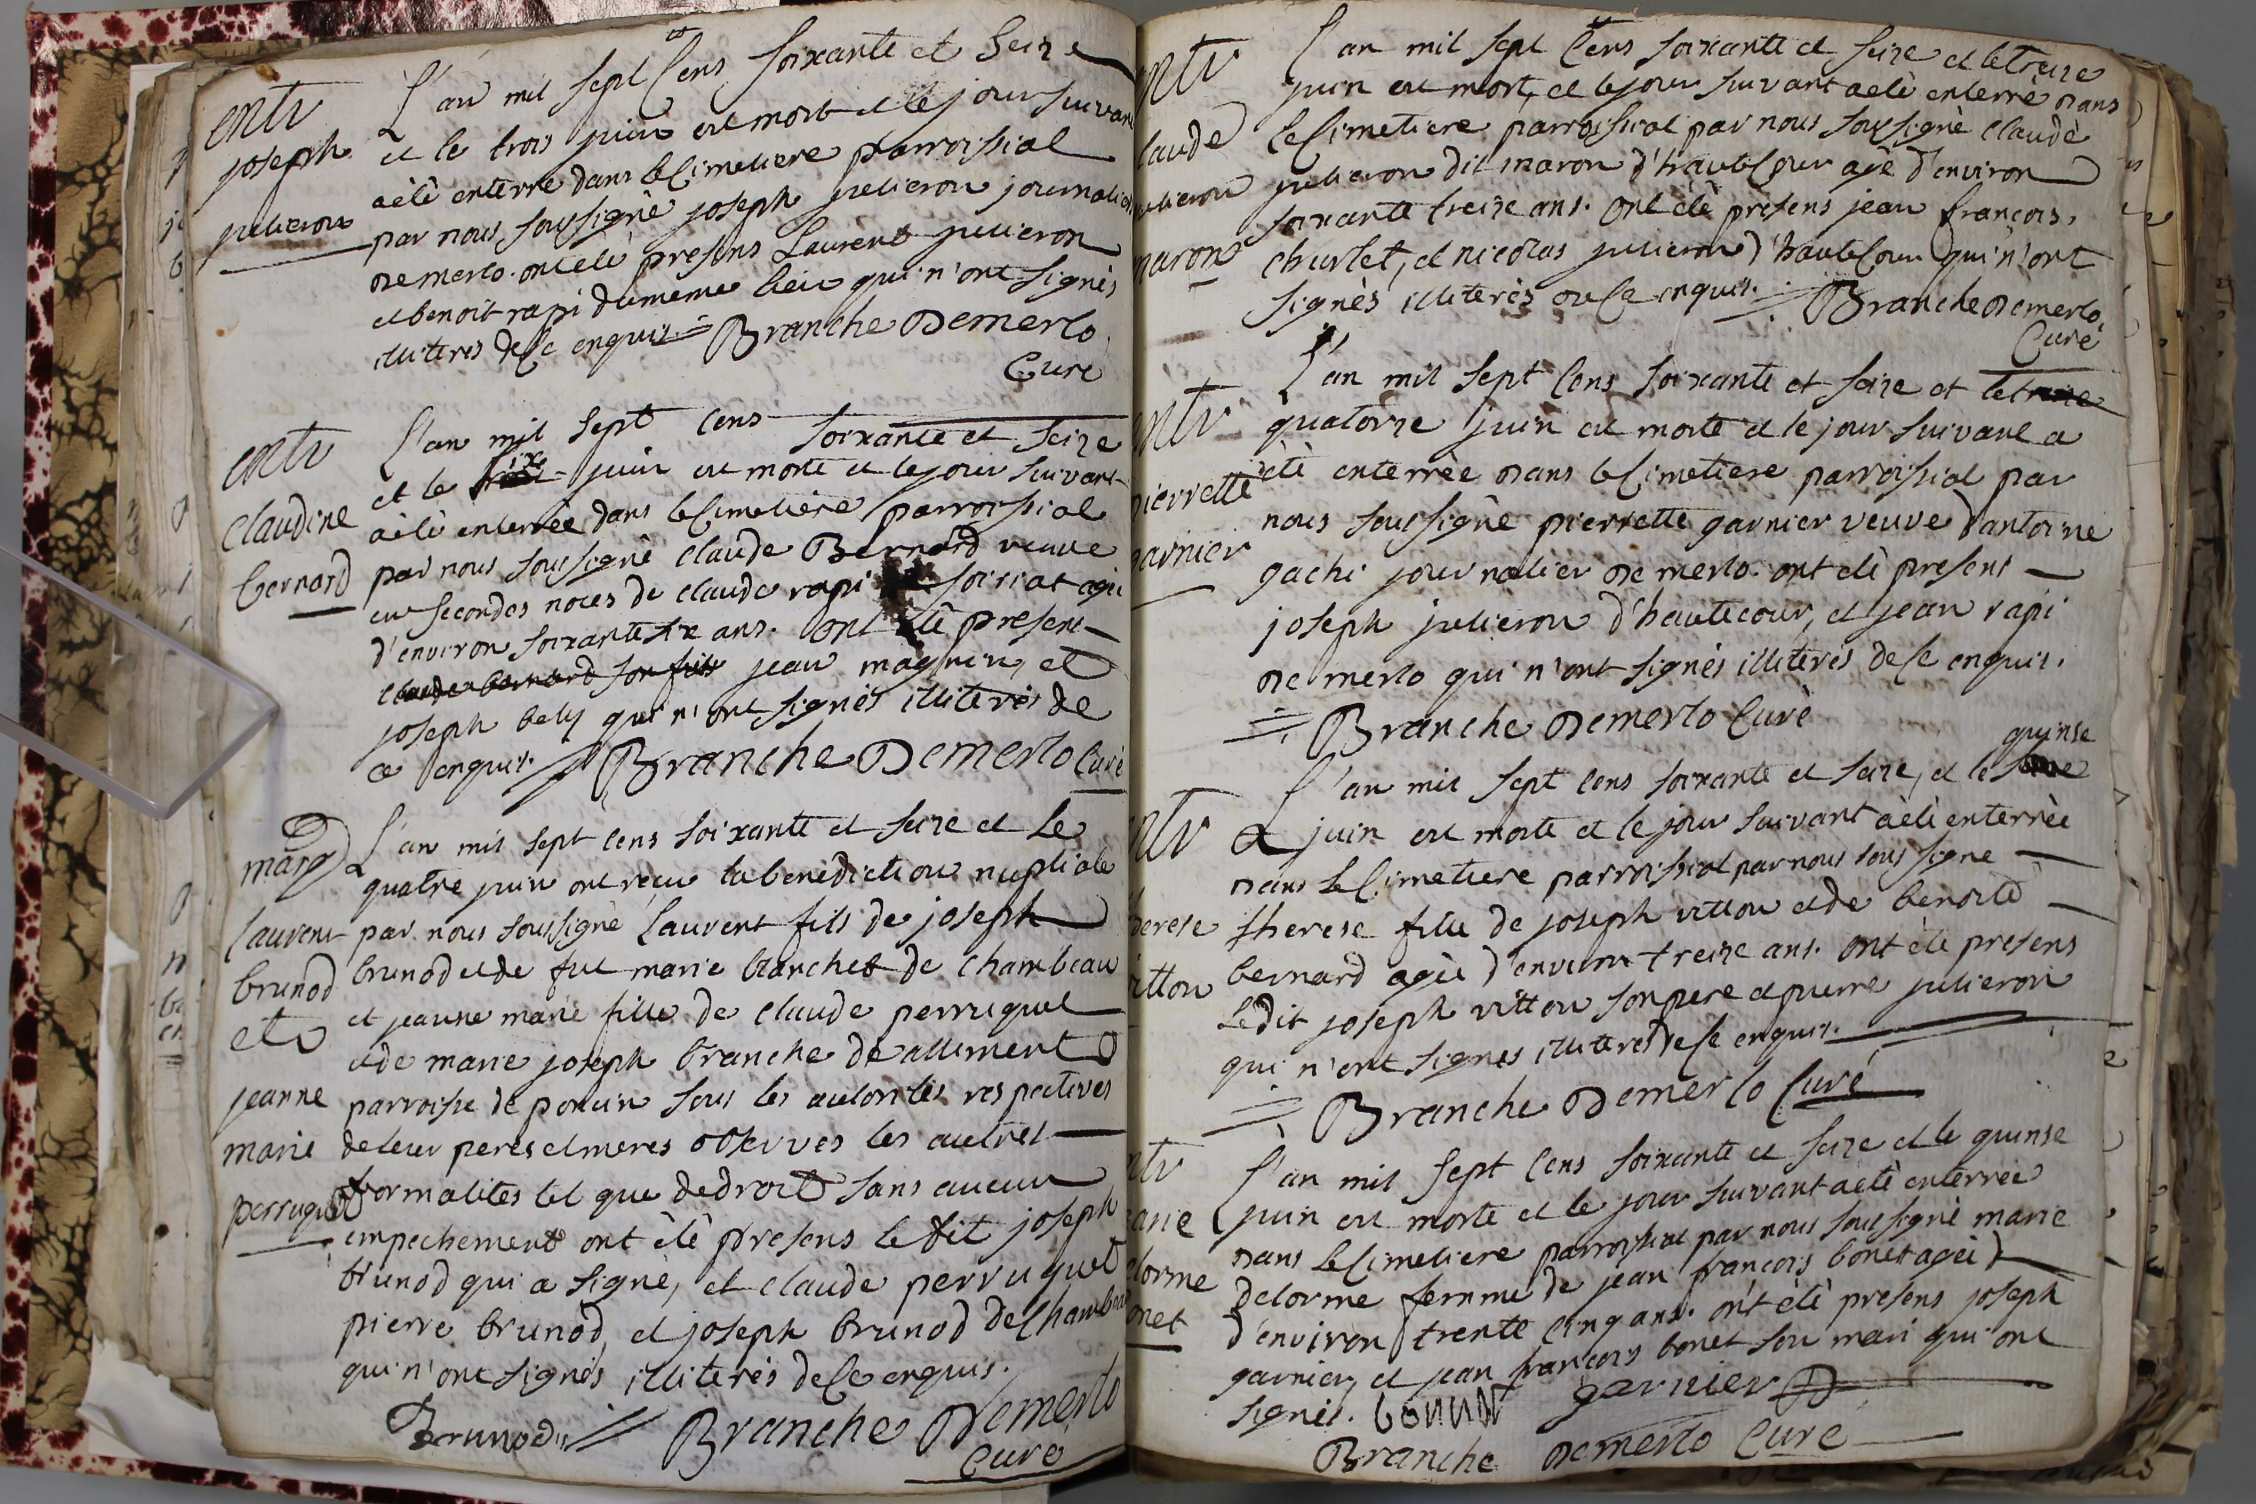 entr
joseph
julieron
L'an mil sept Cens soixante et Seize
et le trois juin est mort et le jour suivant
a été enterré dans le Cimetiere parroissial
par nous soussigné joseph julieron journalier
de merlo. ont été presens Laurent julieron
et benoit rapi du meme lieu qui n'ont signés
illiterés de Ce enquis = Branche Demerlo
Curé
entr
Claudine
bernard
L'an mil sept cens soixante et seize
et le six juin est morte et le jour suivant
a été enterrée dans le Cimetiere parroissial
par nous soussigné claude Bernard veuve
en secondes noces de claude rapi soiriat agée
d'environ soixante six ans. ont été present
claude bernard son fils jean magnin, et
joseph bely qui n'ont signés illiterés de
ce enquis. Branche Demerlo Curé
marg
laurent
brunod
et
jeanne
marie
perruquet
L'an mil sept cens soixante et seize et Le
quatre juin ont recu la benediction nuptiale
par nous soussigné Laurent fils de joseph
brunod et de fut marie blanchet de Chambeau
et jeanne marie fille de claude perruquet
et de marie joseph branche de allement
parroisse de poncin sous les autorités respectives
de leur peres et meres observes les autres
formalites tel que de droit sans aucun
empechement ont été presens le dit joseph
brunod qui a signé, et claude perruquet
pierre brunod, et joseph brunod de Chambeau
qui n'ont signés illiterés de Ce enquis.
Brunod = Branche Demerlo
Curé
entr
laude
julieron
maron
L'an mil sept Cens soixante et seize et le treize
juin est mort, et le jour suivant a été enterré dans
le Cimetiere parroissial par nous soussigné Claude
julieron dit maron d'hauteCour agé d'environ
soixante treize ans. ont été presens jean françois
churlet, et nicolas julieron d'hauteCour qui n'ont
signés illiterés de Ce enquis. = Branche Demerlo,
Curé
entr
pierrette
garnier
L'an mil sept Cens soixante et seize et le treize
quatorze juin est morte et le jour suivant a
été enterrée dans le Cimetiere parroissial par
nous soussigné pierrette garnier veuve d'antoine
gachi journalier de merlo. ont été present
joseph julieron d'hautecour, et jean rapi
de merlo qui n'ont signés illiterés de Ce enquis.
= Branche Demerlo Curé
entr
therese
vitton
quinse
L'an mil sept cens soixante et seize, et le
juin est morte et le jour suivant a été enterrée
dans le Cimetiere parroissial par nous sous signe
therese fille de joseph vitton et de benoite
bernard agée d'environ treize ans. ont été presens
Ledit joseph vitton son pere et pierre julieron
qui n'ont signes illiteres de Ce enquis.
= Branche Demerlo Curé
entr
marie
delorme
bonet
L'an mil sept Cens soixante et seize et le quinse
juin est morte et le jour suivant a été enterrée
dans le Cimetiere parroissial par nous soussigné marie
delorme femme de jean françois bonet agée
d'environ trente Cinq ans. ont été presens joseph
garnier, et jean françois bonet son mari qui ont
signés. bonnet garnier
Branche Demerlo Curé